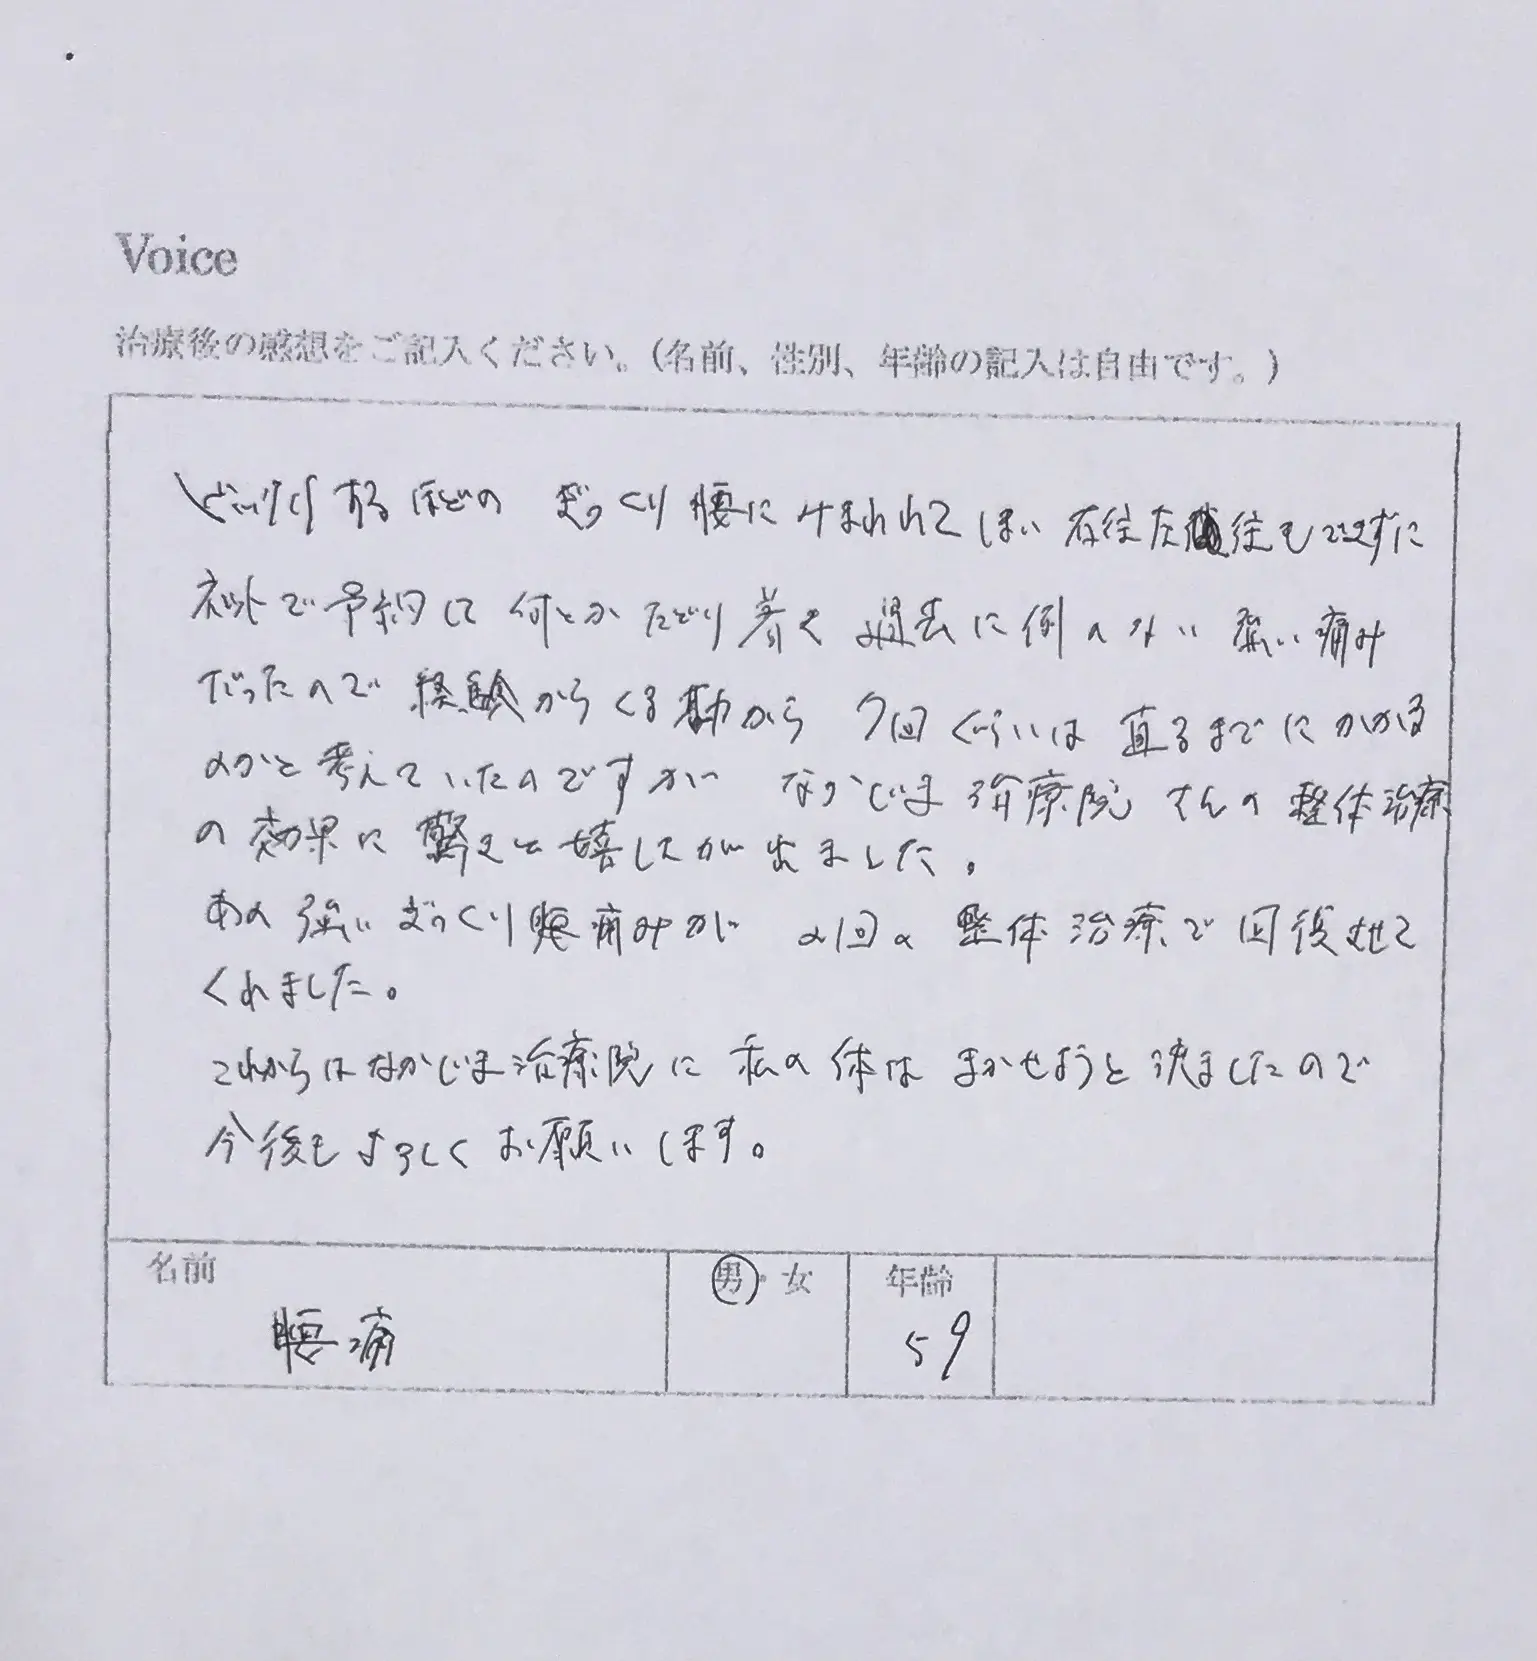 Voice
治療後の感想をご記入ください。(名前、性別、年齢の記入は自由です。)
びっくりするほどの ぎっくり腰にみまわれてしまい 右往左往もできずに
ネットで予約して何とかたどり着き 過去に例のない強い痛み
だったので経験からくる勘から 7回くらいは直るまでにかかる
のかと考えていたのですが なかじま治療院さんの整体治療
の効果に驚きと嬉しさが出ました。
あの強いぎっくり腰痛みが 2回の整体治療で回復させて
くれました。
これからはなかじま治療院に私の体はまかせようと決ましたので
今後もよろしくお願いします。
名前 男・女 年齢
腰痛 59